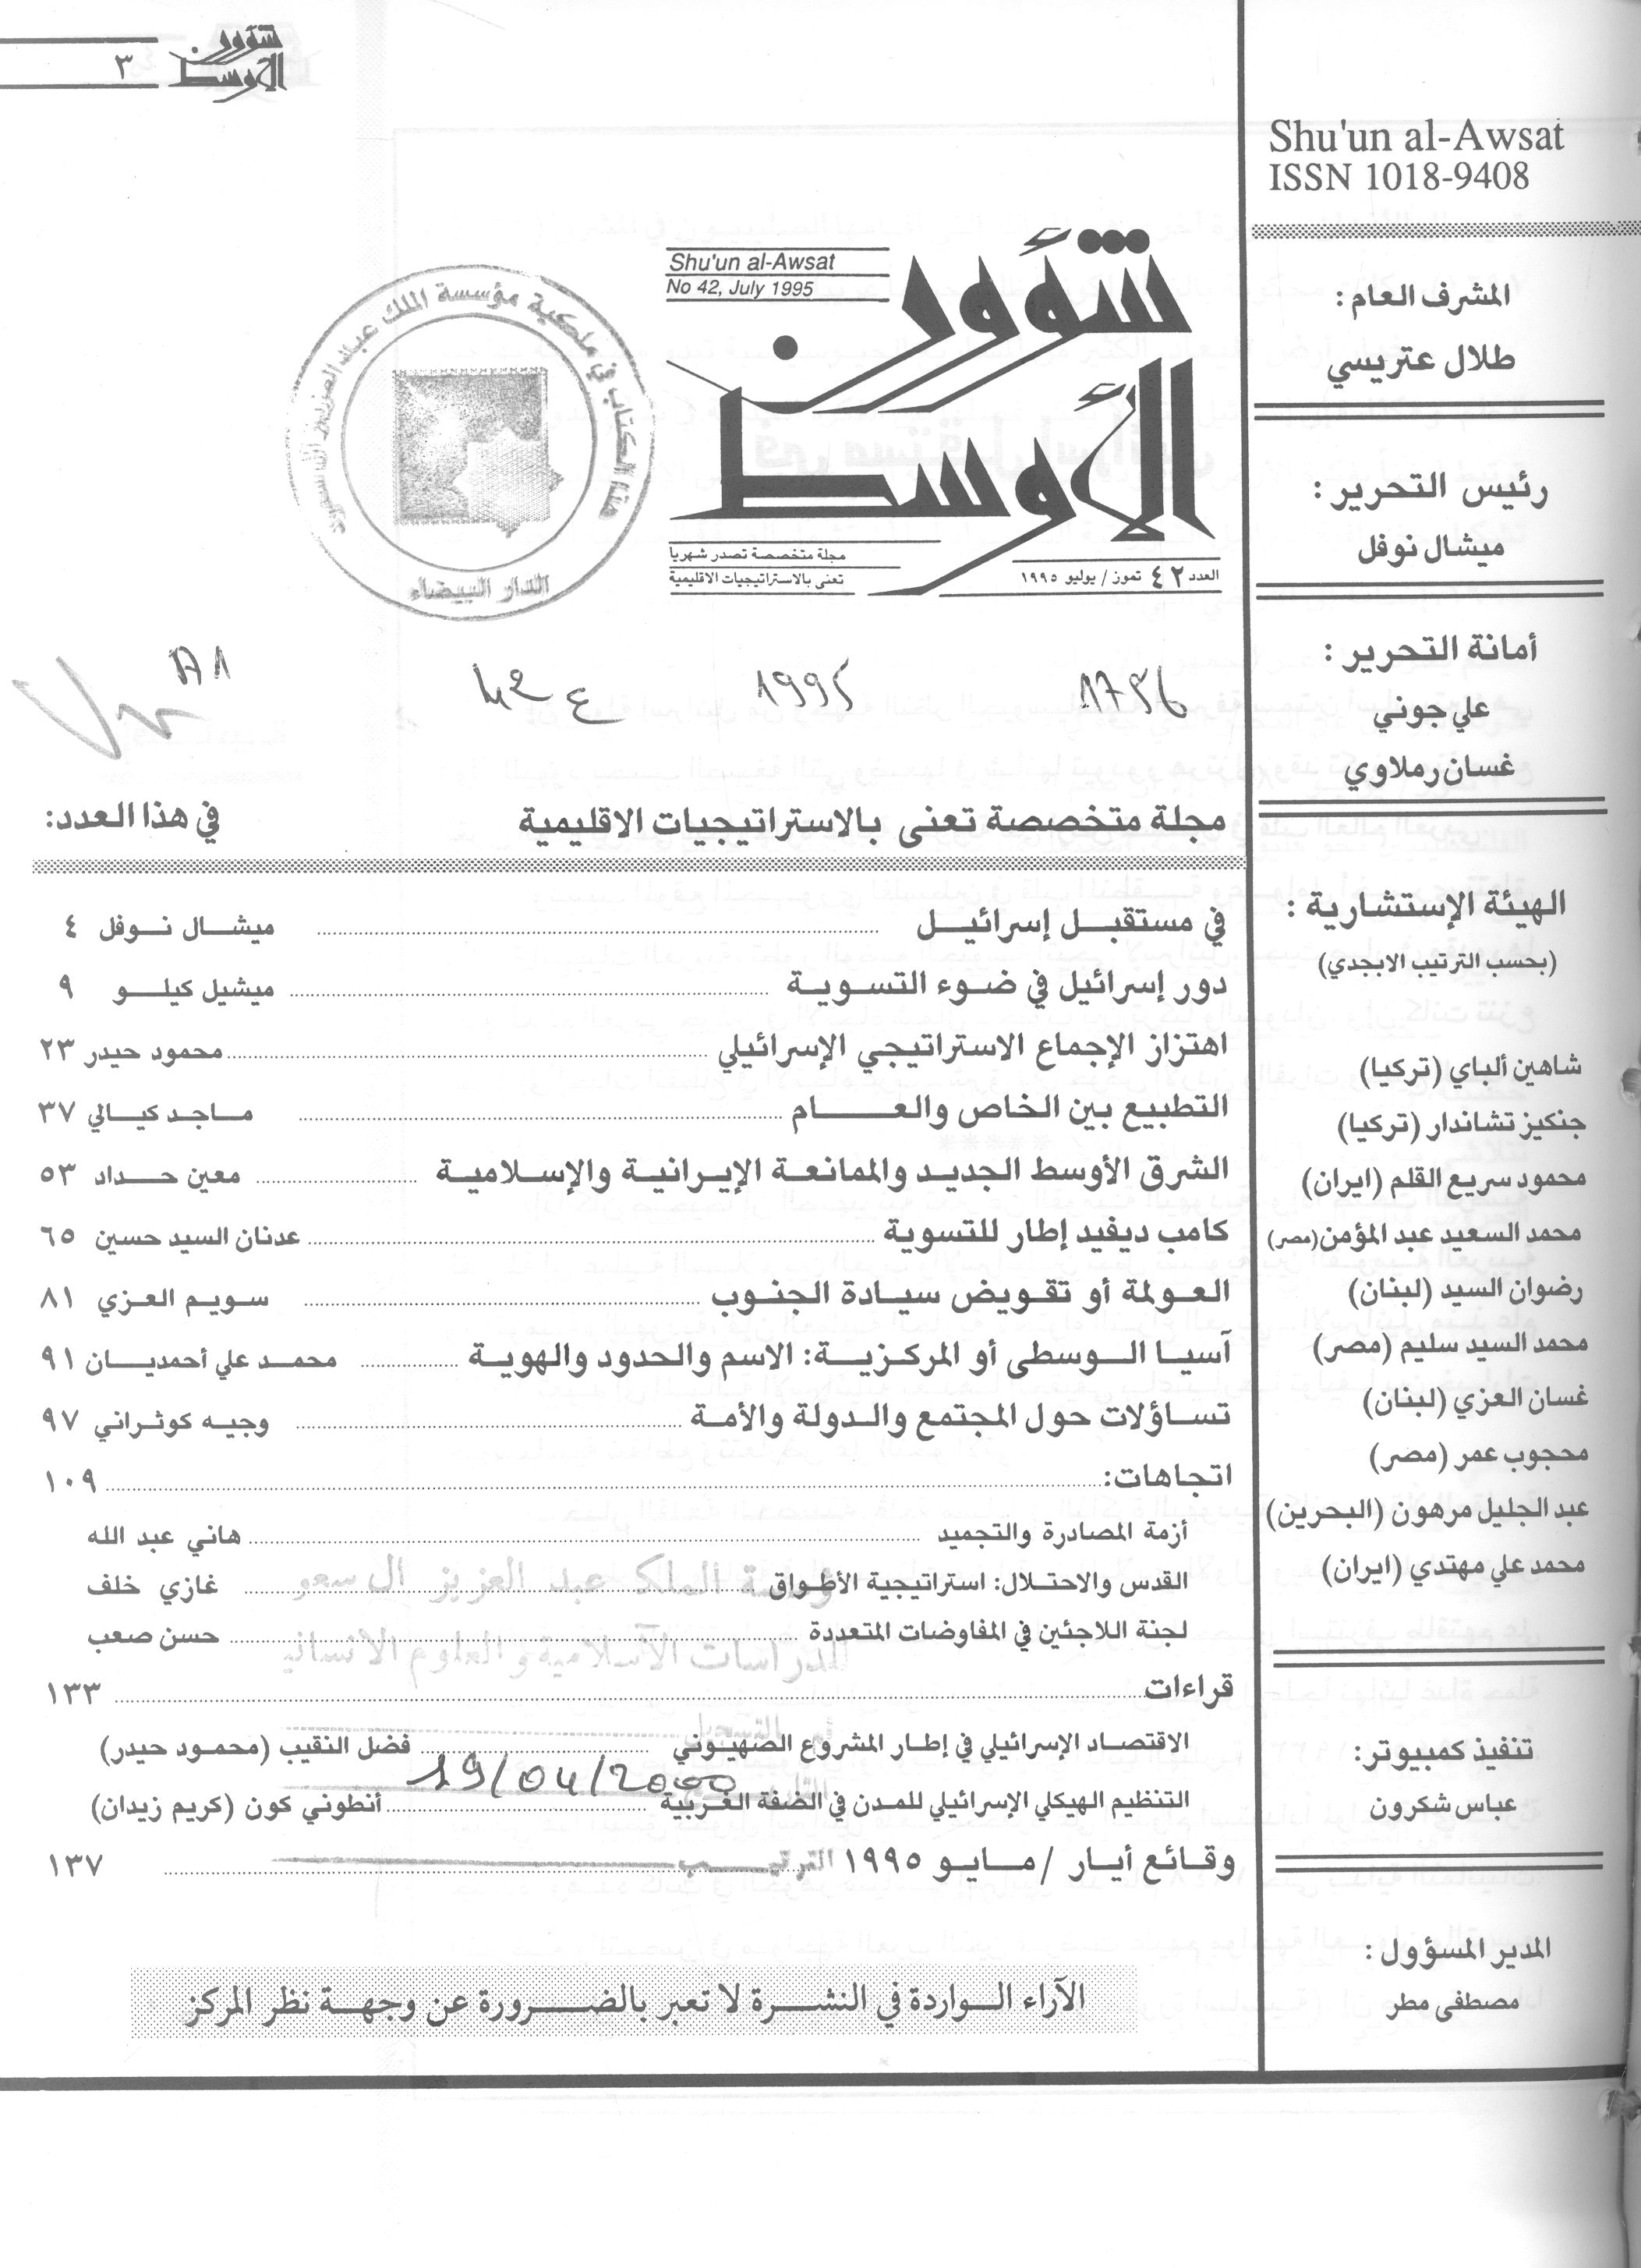 شؤون الأوسط
٣
Shu'un al-Awsat
ISSN 1018-9408
المشرف العام :
طلال عتريسي
رئيس التحرير :
ميشال نوفل
أمانة التحرير :
علي جوني
غسان رملاوي
الهيئة الإستشارية :
(بحسب الترتيب الابجدي)
شاهين ألباي (تركيا)
جنكيز تشاندار (تركيا)
محمود سريع القلم (ايران)
محمد السعيد عبد المؤمن (مصر)
رضوان السيد (لبنان)
محمد السيد سليم (مصر)
غسان العزي (لبنان)
محجوب عمر (مصر)
عبد الجليل مرهون (البحرين)
محمد علي مهتدي (ايران)
تنفيذ كمبيوتر:
عباس شكرون
المدير المسؤول :
مصطفى مطر
Shu'un al-Awsat
No 42, July 1995
شؤون
الأوسط
مجلة متخصصة تصدر شهريا
تعنى بالاستراتيجيات الاقليمية
العدد ٤٢ تموز / يوليو ١٩٩٥
هذا الكتاب في ملكية مؤسسة الملك عبد العزيز آل سعود
الدار البيضاء
A1
42 ع
1995
1756
مجلة متخصصة تعنى بالاستراتيجيات الاقليمية
في هذا العدد:
في مستقبل إسرائيل ........ ميشال نوفل ٤
دور إسرائيل في ضوء التسوية ........ ميشيل كيلو ٩
اهتزاز الإجماع الاستراتيجي الإسرائيلي ........ محمود حيدر ٢٣
التطبيع بين الخاص والعام ........ ماجد كيالي ٣٧
الشرق الأوسط الجديد والممانعة الإيرانية والإسلامية ........ معين حداد ٥٣
كامب ديفيد إطار للتسوية ........ عدنان السيد حسين ٦٥
العولمة أو تقويض سيادة الجنوب ........ سويم العزي ٨١
آسيا الوسطى أو المركزية: الاسم والحدود والهوية ........ محمد علي أحمديان ٩١
تساؤلات حول المجتمع والدولة والأمة ........ وجيه كوثراني ٩٧
اتجاهات: ........ ١٠٩
أزمة المصادرة والتجميد ........ هاني عبد الله
القدس والاحتلال: استراتيجية الأطواق ........ غازي خلف
لجنة اللاجئين في المفاوضات المتعددة ........ حسن صعب
قراءات ........ ١٣٣
الاقتصاد الإسرائيلي في إطار المشروع الصهيوني ........ فضل النقيب (محمود حيدر)
التنظيم الهيكلي الإسرائيلي للمدن في الضفة الغربية ........ أنطوني كون (كريم زيدان)
وقائع أيار / مايو ١٩٩٥ ........ ١٣٧
الملك عبد العزيز ال سعو
للدراسات الاسلامية و العلوم الانساني
19/04/2000
الآراء الواردة في النشرة لا تعبر بالضرورة عن وجهة نظر المركز